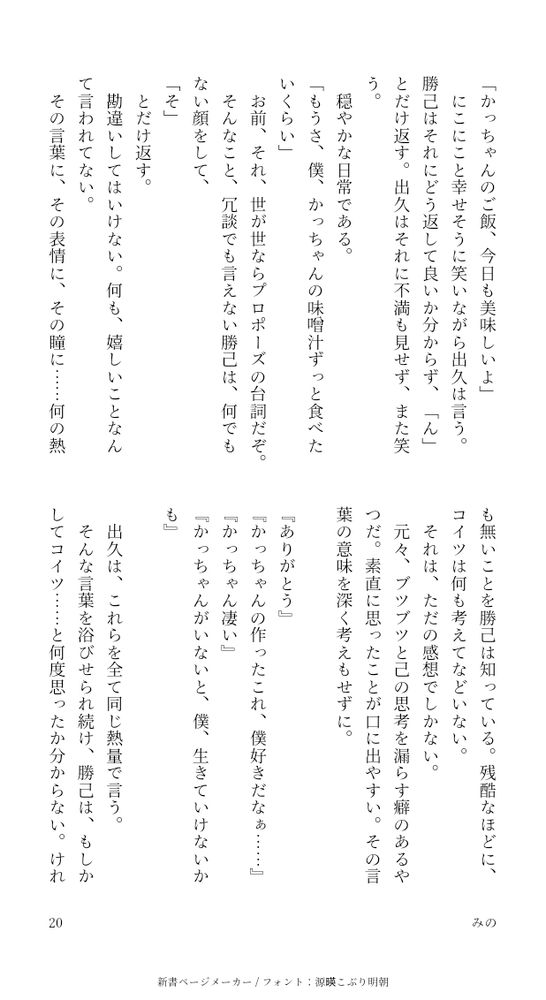 「かっちゃんのご飯、今日も美味しいよ」
　にこにこと幸せそうに笑いながら出久は言う。
勝己はそれにどう返して良いか分からず、「ん」
とだけ返す。出久はそれに不満も見せず、また笑
う。
　穏やかな日常である。
「もうさ、僕、かっちゃんの味噌汁ずっと食べた
いくらい」
　お前、それ、世が世ならプロポーズの台詞だぞ。
　そんなこと、冗談でも言えない勝己は、何でも
ない顔をして、
「そ」
　とだけ返す。
　勘違いしてはいけない。何も、嬉しいことなん
て言われてない。
　その言葉に、その表情に、その瞳に……何の熱
も無いことを勝己は知っている。残酷なほどに、
コイツは何も考えてなどいない。
　それは、ただの感想でしかない。
　元々、ブツブツと己の思考を漏らす癖のあるや
つだ。素直に思ったことが口に出やすい。その言
葉の意味を深く考えもせずに。
『ありがとう』
『かっちゃんの作ったこれ、僕好きだなぁ……』
『かっちゃん凄い』
『かっちゃんがいないと、僕、生きていけないか
も』
　出久は、これらを全て同じ熱量で言う。
　そんな言葉を浴びせられ続け、勝己は、もしか
してコイツ……と何度思ったか分からない。けれ
みの
20
新書ページメーカー / フォント：源暎こぶり明朝